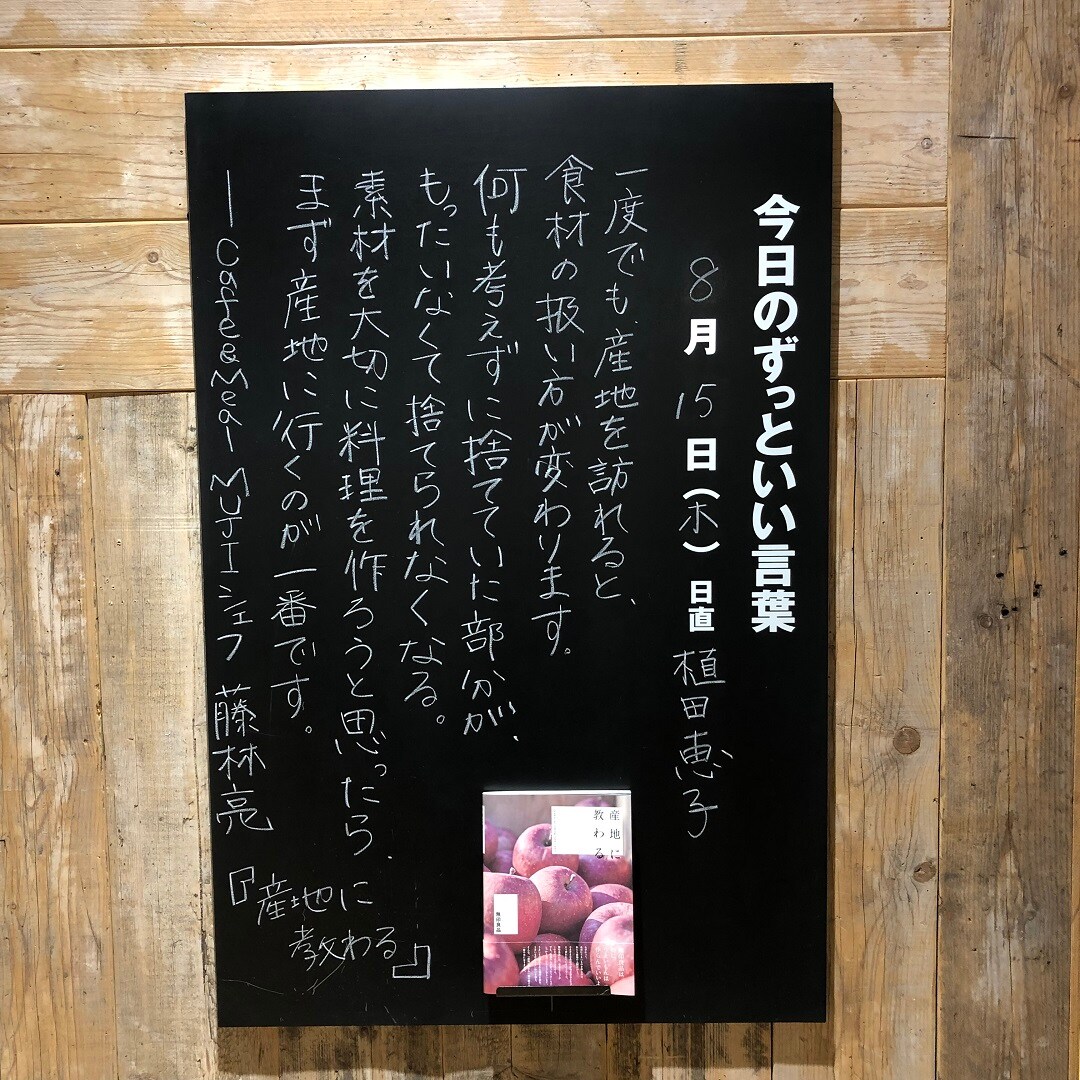 今日のずっといい言葉
8月15日(木) 日直 植田恵子
一度でも、産地を訪れると、
食材の扱い方が変わります。
何も考えずに捨てていた部分が、
もったいなくて捨てられなくなる。
素材を大切に料理を作ろうと思ったら、
まず産地に行くのが一番です。
— Café&Meal MUJIシェフ 藤林亮
『産地に
教わる』
産地に
教わる
無印良品